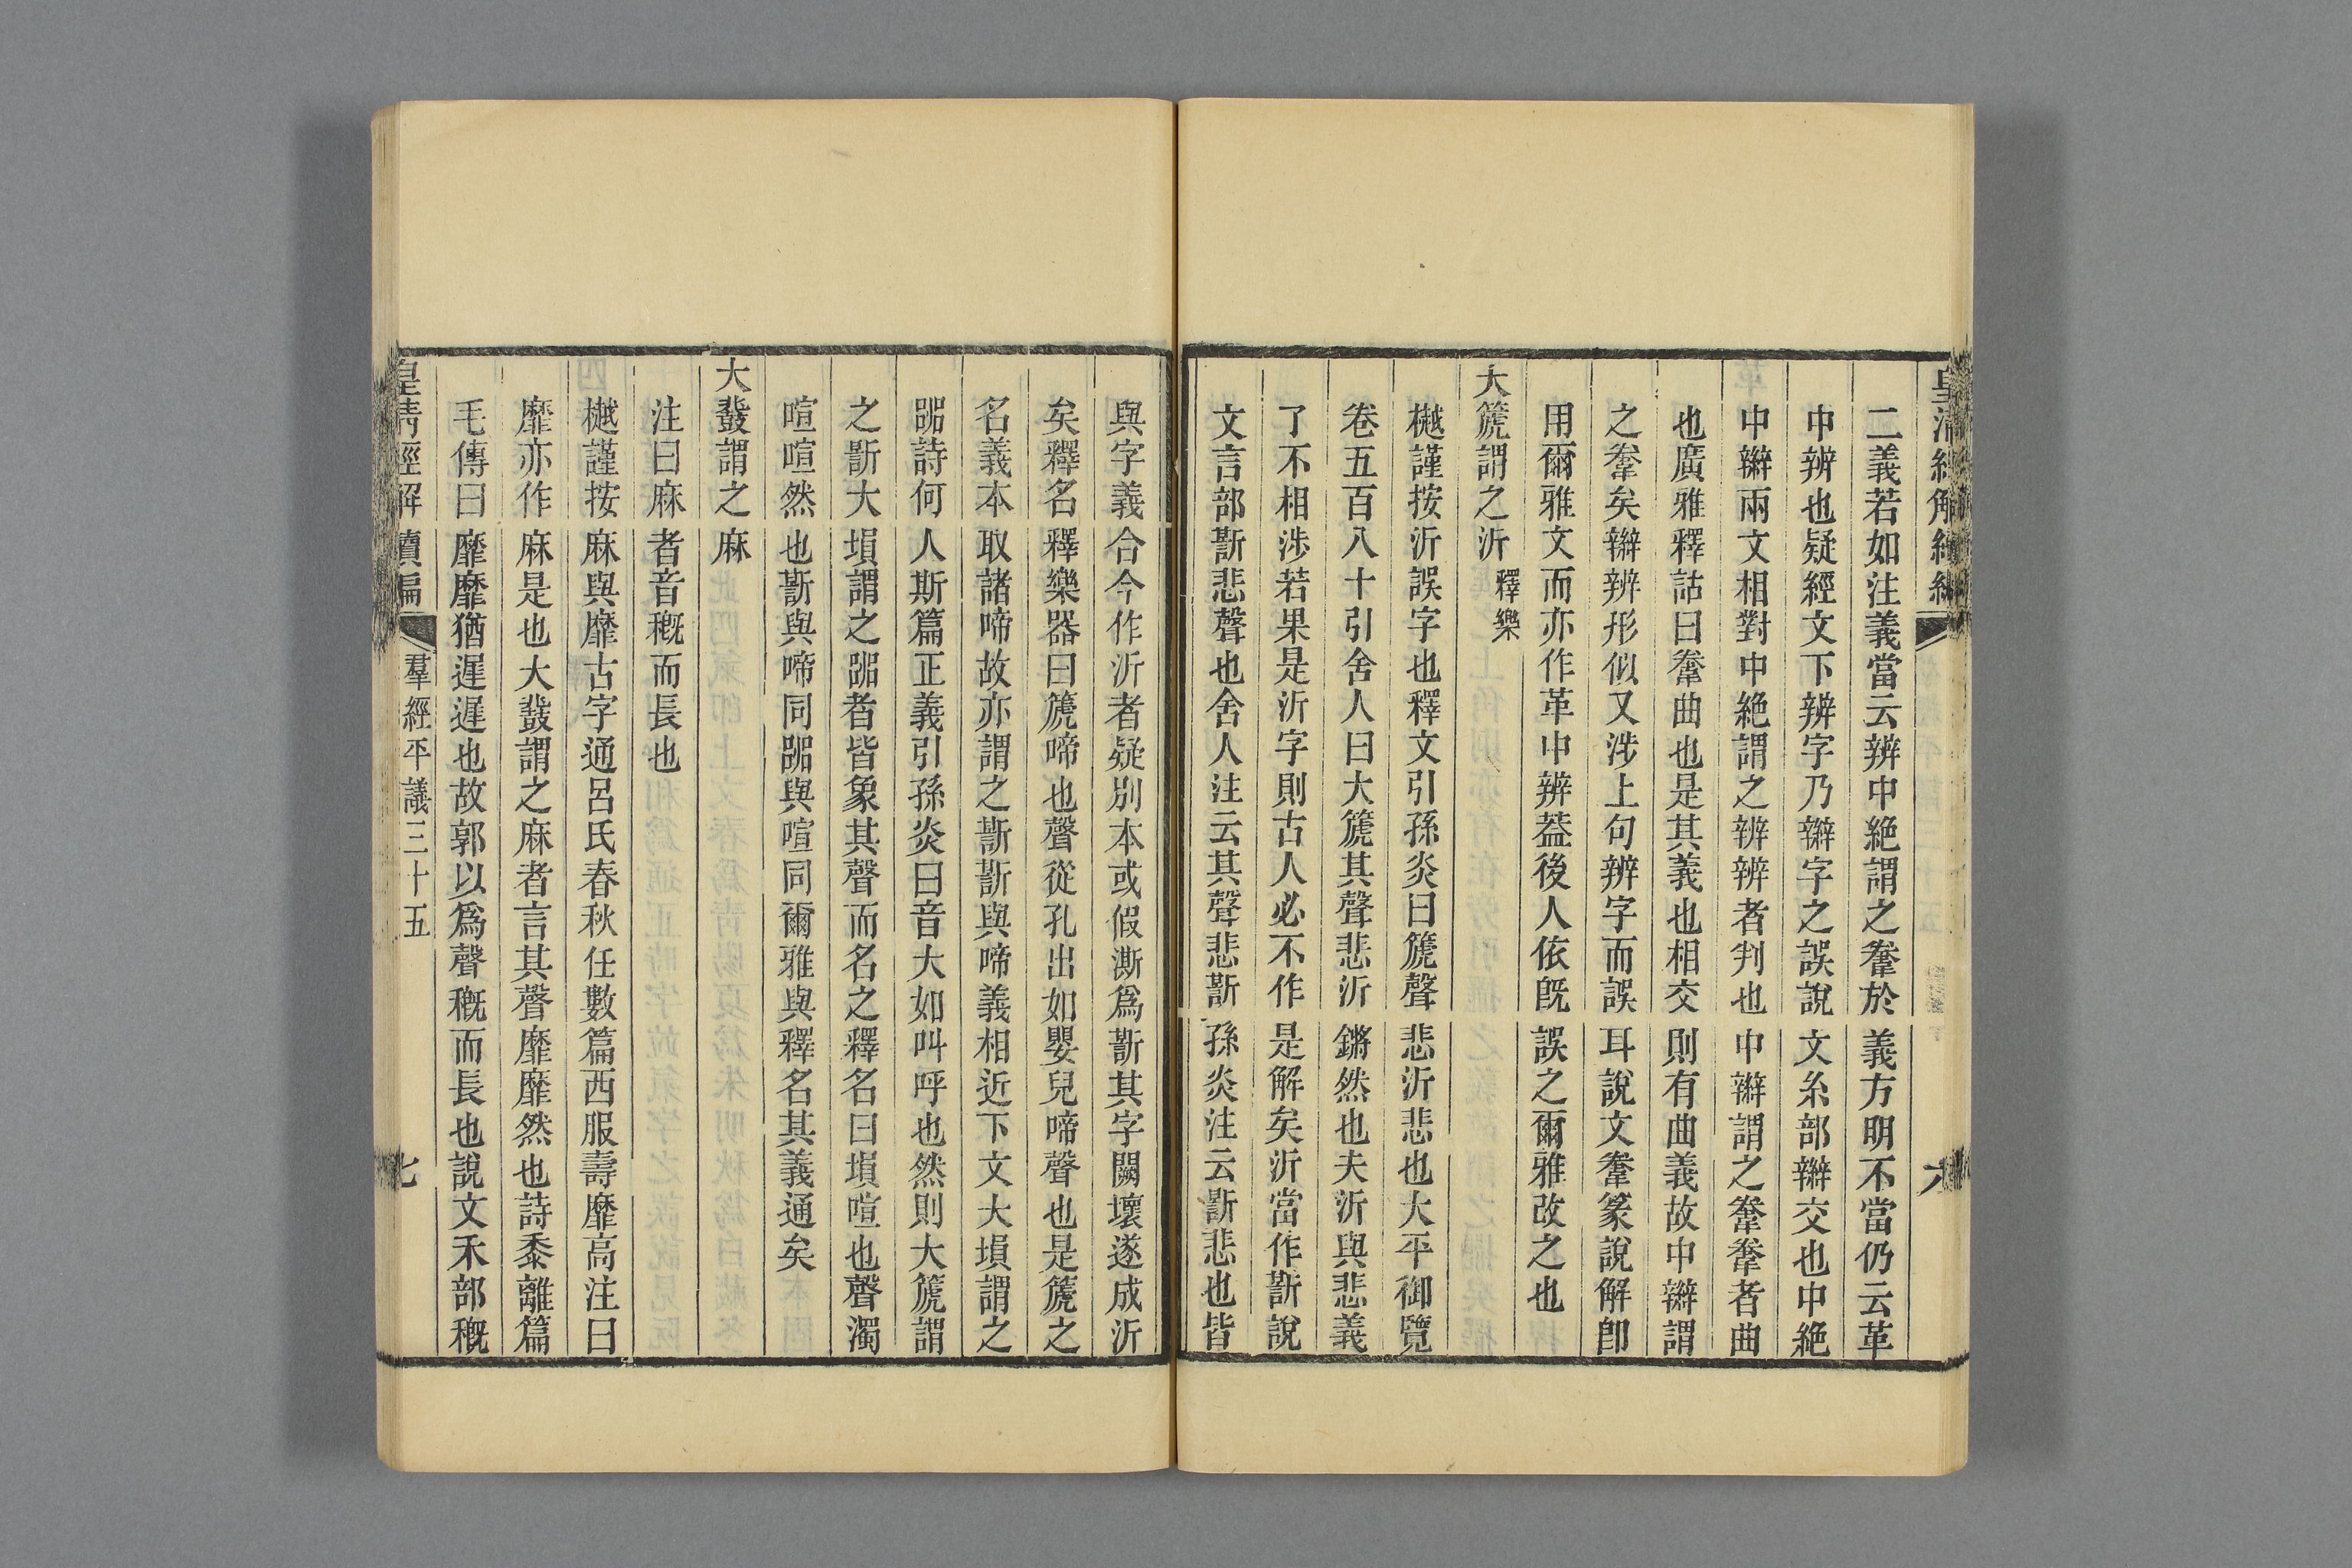 二義若如注義當云辨中絶謂之韏於義方明不當仍云革
中辨也疑經文下辨字乃辮字之誤說文糸部辮交也中絶
中辮兩文相對中絶謂之辨辨者判也中辮謂之韏韏者曲
也廣雅釋詁曰韏曲也是其義也相交則有曲義故中辮謂
之韏矣辮辨形似又涉上句辨字而誤耳說文韏篆說解卽
用爾雅文而亦作革中辨葢後人依旣誤之爾雅改之也
大篪謂之沂 釋樂
樾謹按沂誤字也釋文引孫炎曰篪聲悲沂悲也大平御覽
卷五百八十引舍人曰大篪其聲悲沂鏘然也夫沂與悲義
了不相涉若果是沂字則古人必不作是解矣沂當作㪿說
文言部㪿悲聲也舍人注云其聲悲㪿孫炎注云㪿悲也皆
與字義合今作沂者疑別本或假澌爲㪿其字闕壞遂成沂
矣釋名釋樂器曰篪啼也聲從孔出如嬰兒啼聲也是篪之
名義本取諸啼故亦謂之㪿㪿與啼義相近下文大塤謂之
嘂詩何人斯篇正義引孫炎曰音大如叫呼也然則大篪謂
之㪿大塤謂之嘂者皆象其聲而名之釋名曰塤喧也聲濁
喧喧然也㪿與啼同嘂與喧同爾雅與釋名其義通矣
大鼗謂之麻
注曰麻者音穊而長也
樾謹按麻與靡古字通呂氏春秋任數篇西服壽靡高注曰
靡亦作麻是也大鼗謂之麻者言其聲靡靡然也詩黍離篇
毛傳曰靡靡猶遲遲也故郭以爲聲穊而長也說文禾部穊
皇清經解續編 羣經平議三十五 七